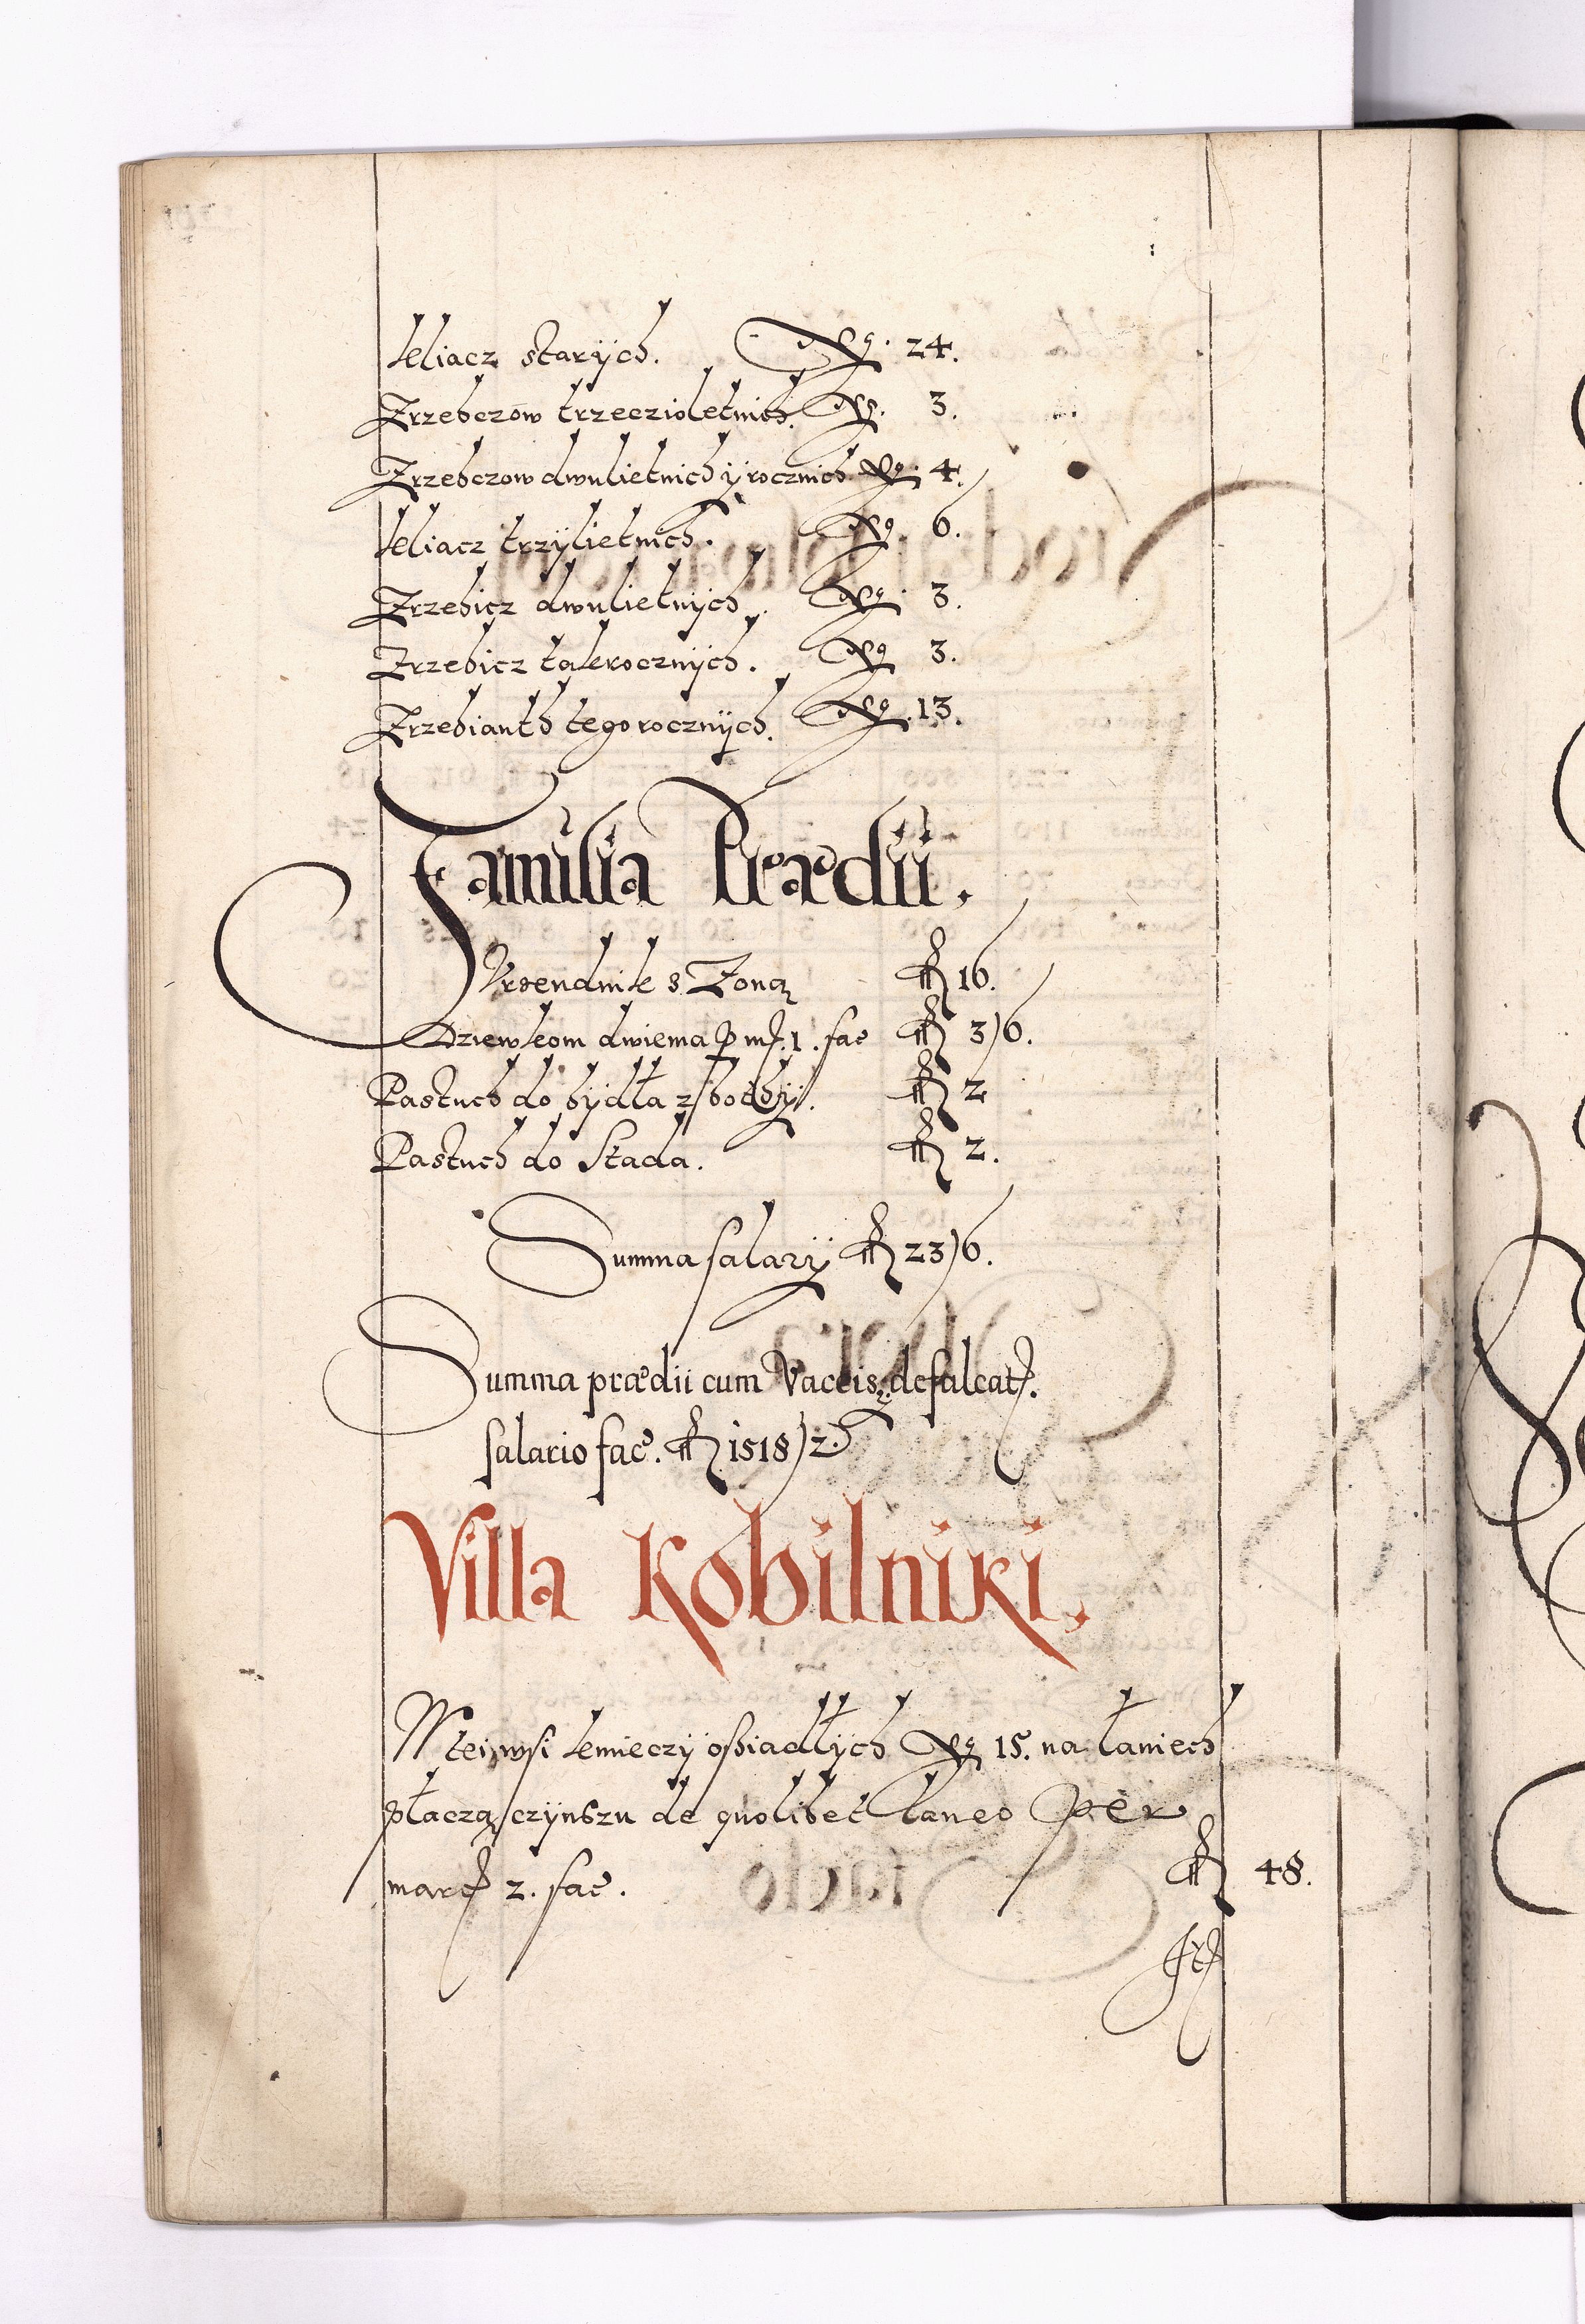 kliacz starÿch. No. 24.
Zrzebczow trzeczioletnich. No. 3.
Zrzebczow dwulietnich ÿ rocznich No. 4.
kliacz trzÿlietnich. No. 6.
Zrzebicz dwulietnÿch. No. 3.
Zrzebicz takrocznÿch. No 3.
Zrzebiantħ tegorocznÿch. No. 13.
Familia Prædii.
Vrzendnik s Zoną fl 16.
Dziewkom dwiema p mr. 1. fac fl 3)6.
Pastuch do bÿdła z
Pastuch do Stada. fl 2.
Summa salarÿ fl 23)6.
Summa prædii cum Vaccis, defalcat.
salario fac. fl 1518)2.
Villa Kobilniki.
Wtei wsi kmieczÿ ossiadłÿch No 15. na łaniech
płaczą czÿnszu de quolibet laneo per
marc 2. fac. fl 48.
It